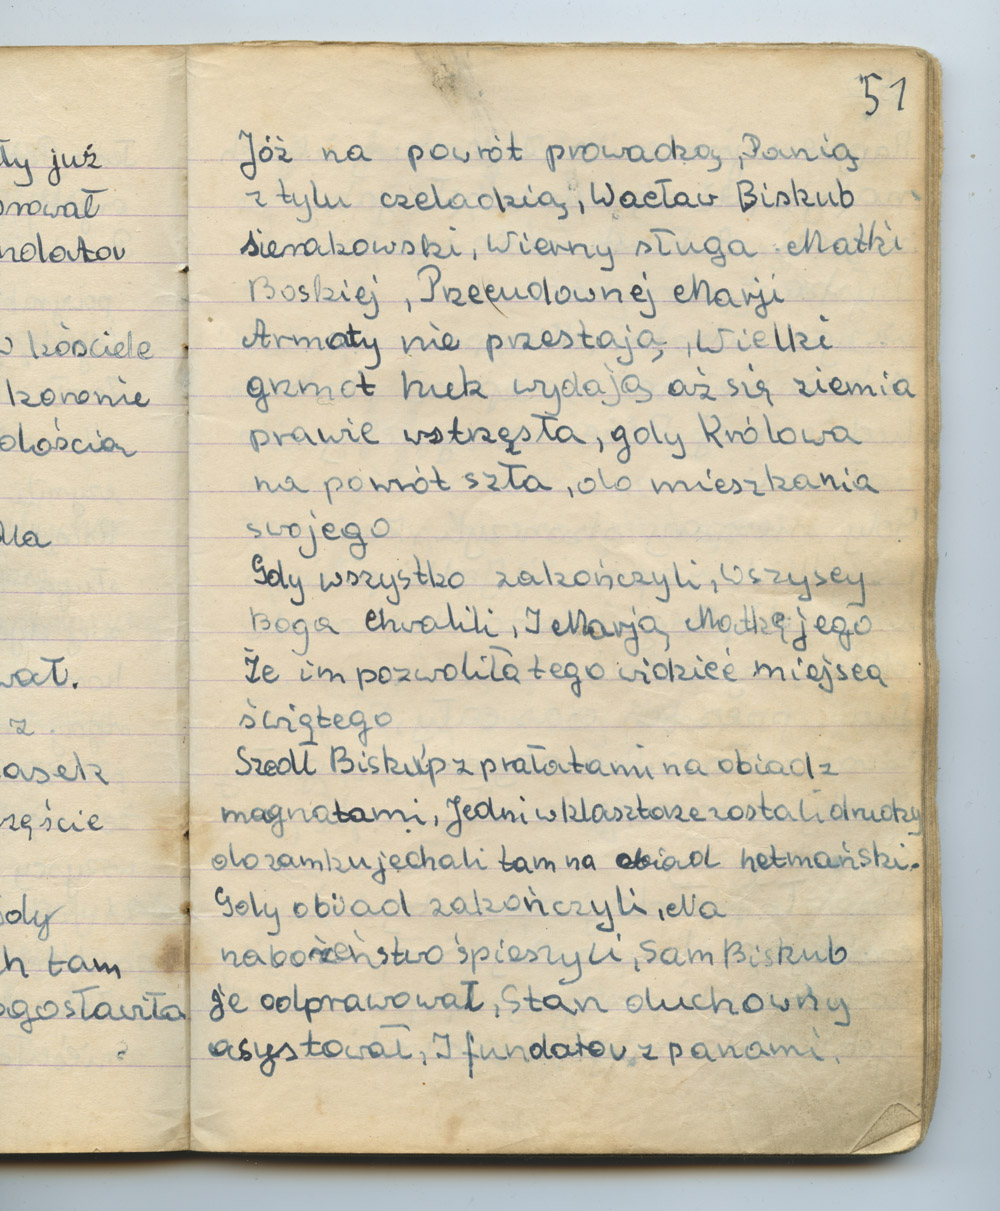 51
ły już
orował
ndatov
w kościele
koronie
olością
dla
wał.
z
asek
zęście
Gdy
ch tam
ogosławiła
Jóż na powrót prowadzą, Panią
z tylu czeladzią, Wacław Biskub
sierakowski, Wierny sługa Matki
Boskiej, Przecudownej Marji
Armaty nie przestają, Wielki
grzmot huk wydają aż się ziemia
prawie wstrzęsła, gdy Królowa
na powrót szła, do mieszkania
swojego
Gdy wszystko zakończyli, Wszyscy
Boga chwalili, I Marją, Matkę jego
Że im pozwoliła tego widzieć miejsca
świętego
Szedł Biskup z prałatami na obiad z
magnatami, Jedni w klasztorze zostali drudzy
do zamku jechali tam na obiad hetmański.
Gdy obiad zakończyli, Na
naborzeństwo śpieszyli, Sam Biskub
je odprawował, Stan duchowny
asystował, I fundatov, z panami.